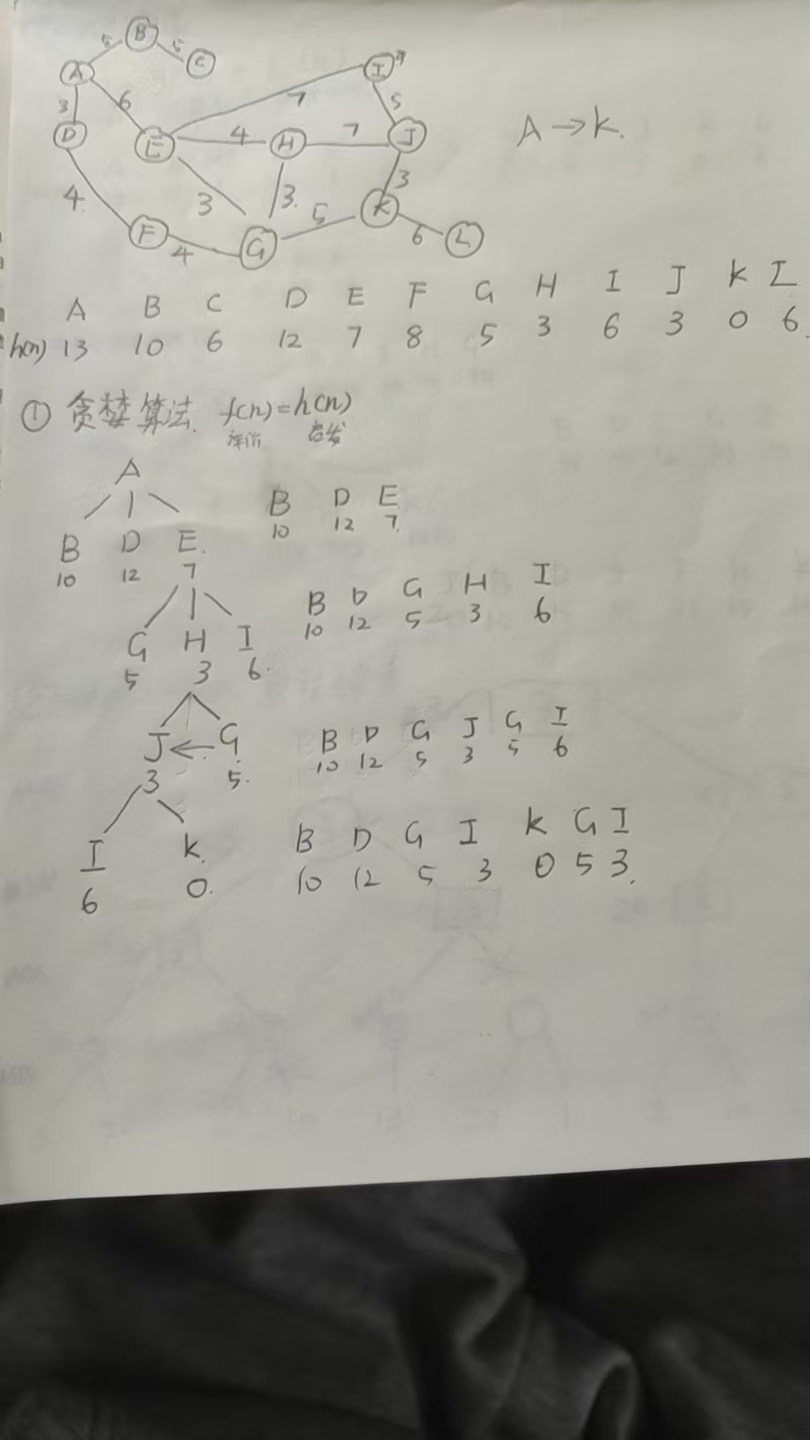 B
5 5
A C I
3 6 7 5
D E 4 H 7 J A→K.
4 3 3. 3
F 4 G 5 K 6 L
A B C D E F G H I J K I
h(n) 13 10 6 12 7 8 5 3 6 3 0 6.
① 贪婪算法. f(n)=h(n)
启发
A
B D E. B D E
10 12 7 10 12 7
G H I B D G H I
5 3 6. 10 12 5 3 6
J G B D G J G I
3 5. 10 12 5 3 5 6
I K. B D G I K G I
6 0. 10 12 5 3 0 5 3.